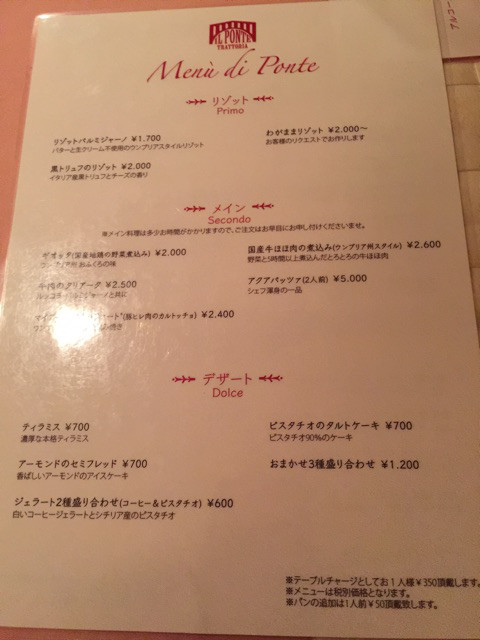 IL PONTE
TRATTORIA
Menù di Ponte
リゾット
Primo
リゾットパルミジャーノ ¥1.700
バターと生クリーム不使用のウンブリアスタイルリゾット
わがままリゾット ¥2.000～
お客様のリクエストでお作りします
黒トリュフのリゾット ¥2.000
イタリア産黒トリュフとチーズの香り
メイン
Secondo
※メイン料理は多少お時間がかかりますので、ご注文はお早目にお申し付けくださいませ。
(国産地鶏の野菜煮込み) ¥2.000
おふくろの味
国産牛ほほ肉の煮込み(ウンブリア州スタイル) ¥2.600
野菜と5時間以上煮込んだとろとろの牛ほほ肉
牛肉のタリアータ ¥2.500
ミジャーノと共に
アクアパッツァ(2人前) ¥5.000
シェフ渾身の一品
(豚ヒレ肉のカルトッチョ) ¥2.400
焼き
デザート
Dolce
ティラミス ¥700
濃厚な本格ティラミス
ピスタチオのタルトケーキ ¥700
ピスタチオ90%のケーキ
アーモンドのセミフレッド ¥700
香ばしいアーモンドのアイスケーキ
おまかせ3種盛り合わせ ¥1.200
ジェラート2種盛り合わせ(コーヒー＆ピスタチオ) ¥600
白いコーヒージェラートとシチリア産のピスタチオ
※テーブルチャージとしてお1人様¥350頂戴します。
※メニューは税別価格となります。
※パンの追加は1人前¥50頂戴致します。
アルコー